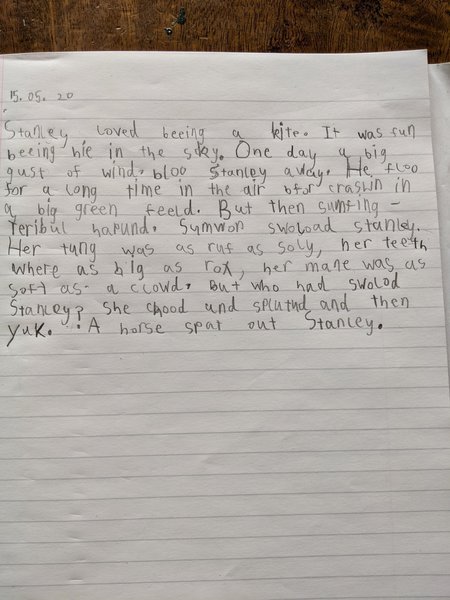 15.05.20
Stanley loved beeing a kite. It was fun
beeing hie in the sky. One day a big
gust of wind. bloo Stanley away. He floo
for a long time in the air bfor crashn in
a big green feeld. But then sumfing -
Teribul hapund. Symwon swoload stanley.
Her tung was as ruf as soly, her teeth
where as big as rox, her mane was as
soft as a clowd. But who had swolod
Stanley? She chood und splutnd and then
yuk. ! A horse spat out Stanley.